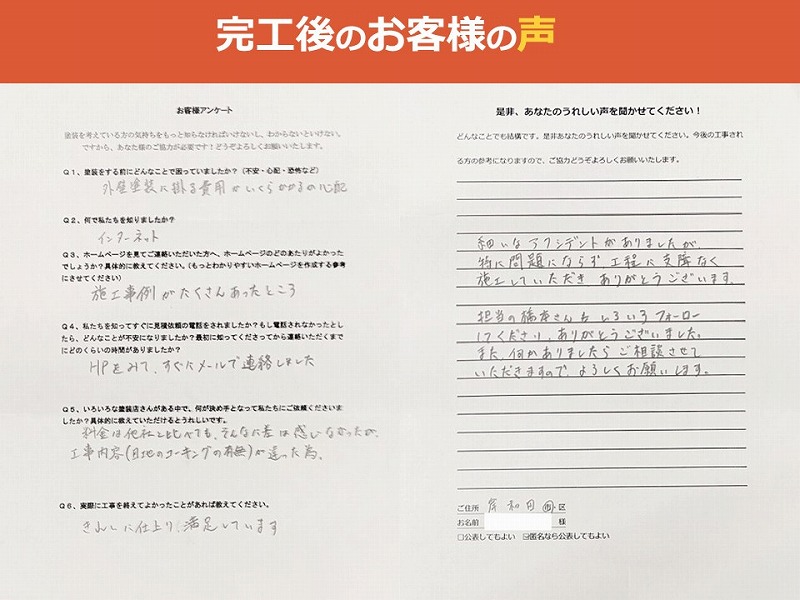 完工後のお客様の声
お客様アンケート
塗装を考えている方の気持ちをもっと知らなければいけないし、わからないといけない。
ですから、あなた様のご協力が必要です！どうぞよろしくお願いいたします。
Q１、塗装をする前にどんなことで困っていましたか？（不安・心配・恐怖など）
外壁塗装に掛る費用がいくらかかるか心配
Q２、何で私たちを知りましたか？
インターネット
Q３、ホームページを見てご連絡いただいた方へ、ホームページのどのあたりがよかった
でしょうか？具体的に教えてください。（もっとわかりやすいホームページを作成する参考
にさせてください）
施工事例がたくさんあったところ
Q４、私たちを知ってすぐに見積依頼の電話をされましたか？もし電話されなかったとし
たら、どんなことが不安になりましたか？最初に知ってくださってから連絡いただくまで
にどのくらいの時間がありましたか？
HPをみて、すぐにメールで連絡しました
Q５、いろいろな塗装店さんがある中で、何が決め手となって私たちにご依頼くださいま
したか？具体的に教えていただけるとうれしいです。
料金は他社と比べても、そんなに差は感じなかったが、
工事内容(目地のコーキングの有無)が違った為。
Q６、実際に工事を終えてよかったことがあれば教えてください。
きれいに仕上り、満足しています
是非、あなたのうれしい声を聞かせてください！
どんなことでも結構です。是非あなたのうれしい声を聞かせてください。今後の工事され
る方の参考になりますので、ご協力どうぞよろしくお願いいたします。
細いなアクシデントがありましたが、
特に問題にならず工程に支障なく
施工していただきありがとうございます。
担当の橋本さんもいろいろフォロー
してくださり、ありがとうございました。
また、何かありましたらご相談させて
いただきますので、よろしくお願いします。
ご住所 岸和田 市 区
お名前 様
□公表してもよい ☑匿名なら公表してもよい